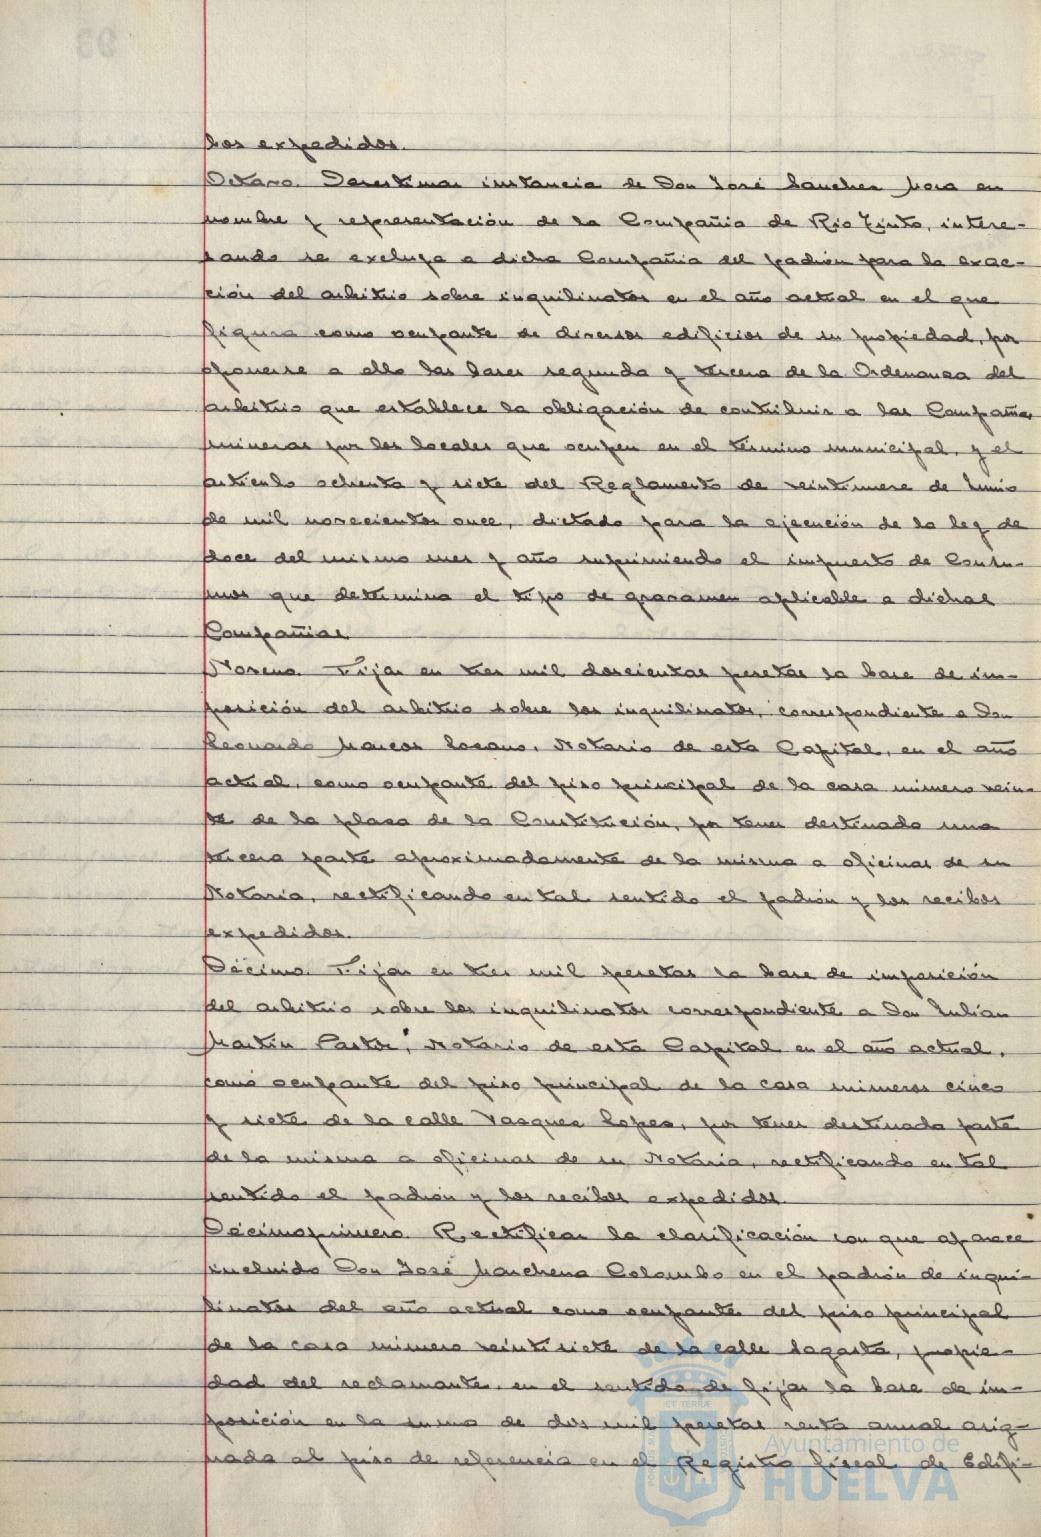 los expedidos.
Octavo. Desestimar instancia de Don José Sanchez Mora en
nombre y representación de la Compañia de Rio Tinto, intere-
sando se excluya a dicha Compañia del padrón para la exac-
ción del arbitrio sobre inquilinatos en el año actual en el que
figura como ocupante de diversos edificios de su propiedad, por
oponerse a ello las bases segunda y tercera de la Ordenanza del
arbitrio que establece la obligación de contribuir a las Compañias
mineras por los locales que ocupen en el término municipal, y el
articulo ochenta y siete del Reglamento de veintinueve de Junio
de mil novecientos once, dictado para la ejecución de la ley de
doce del mismo mes y año suprimiendo el impuesto de Consu-
mos que determina el tipo de gravamen aplicable a dichas
Compañias
Noveno. Fijar en tres mil doscientas pesetas la base de im-
posición del arbitrio sobre los inquilinatos, correspondiente a Don
Leonardo Marcos Lozano, Notario de esta Capital, en el año
actual, como ocupante del piso principal de la casa número vein-
te de la plaza de la Constitución, por tener destinado una
tercera parte aproximadamente de la misma a oficinas de su
Notaria, rectificando en tal sentido el padrón y los recibos
expedidos.
Décimo. Fijar en tres mil pesetas la base de imposición
del arbitrio sobre los inquilinatos correspondiente a Don Julián
Martín Pastor, Notario de esta Capital en el año actual,
como ocupante del piso principal de la casa números cinco
y siete de la calle Vasquez Lopez, por tener destinada parte
de la misma a oficinas de su Notaria, rectificando en tal
sentido el padrón y los recibos expedidos.
Décimoprimero. Rectificar la clasificación con que aparece
incluido Don José Marchena Colombo en el padrón de inqui-
linatos del año actual como ocupante del piso principal
de la casa número veintisiete de la calle Sagasta, propie-
dad del reclamante, en el sentido de fijar la base de im-
posición en la suma de dos mil pesetas renta anual asig-
nada al piso de referencia en el Registro fiscal de Edifi-
Ayuntamiento de
HUELVA